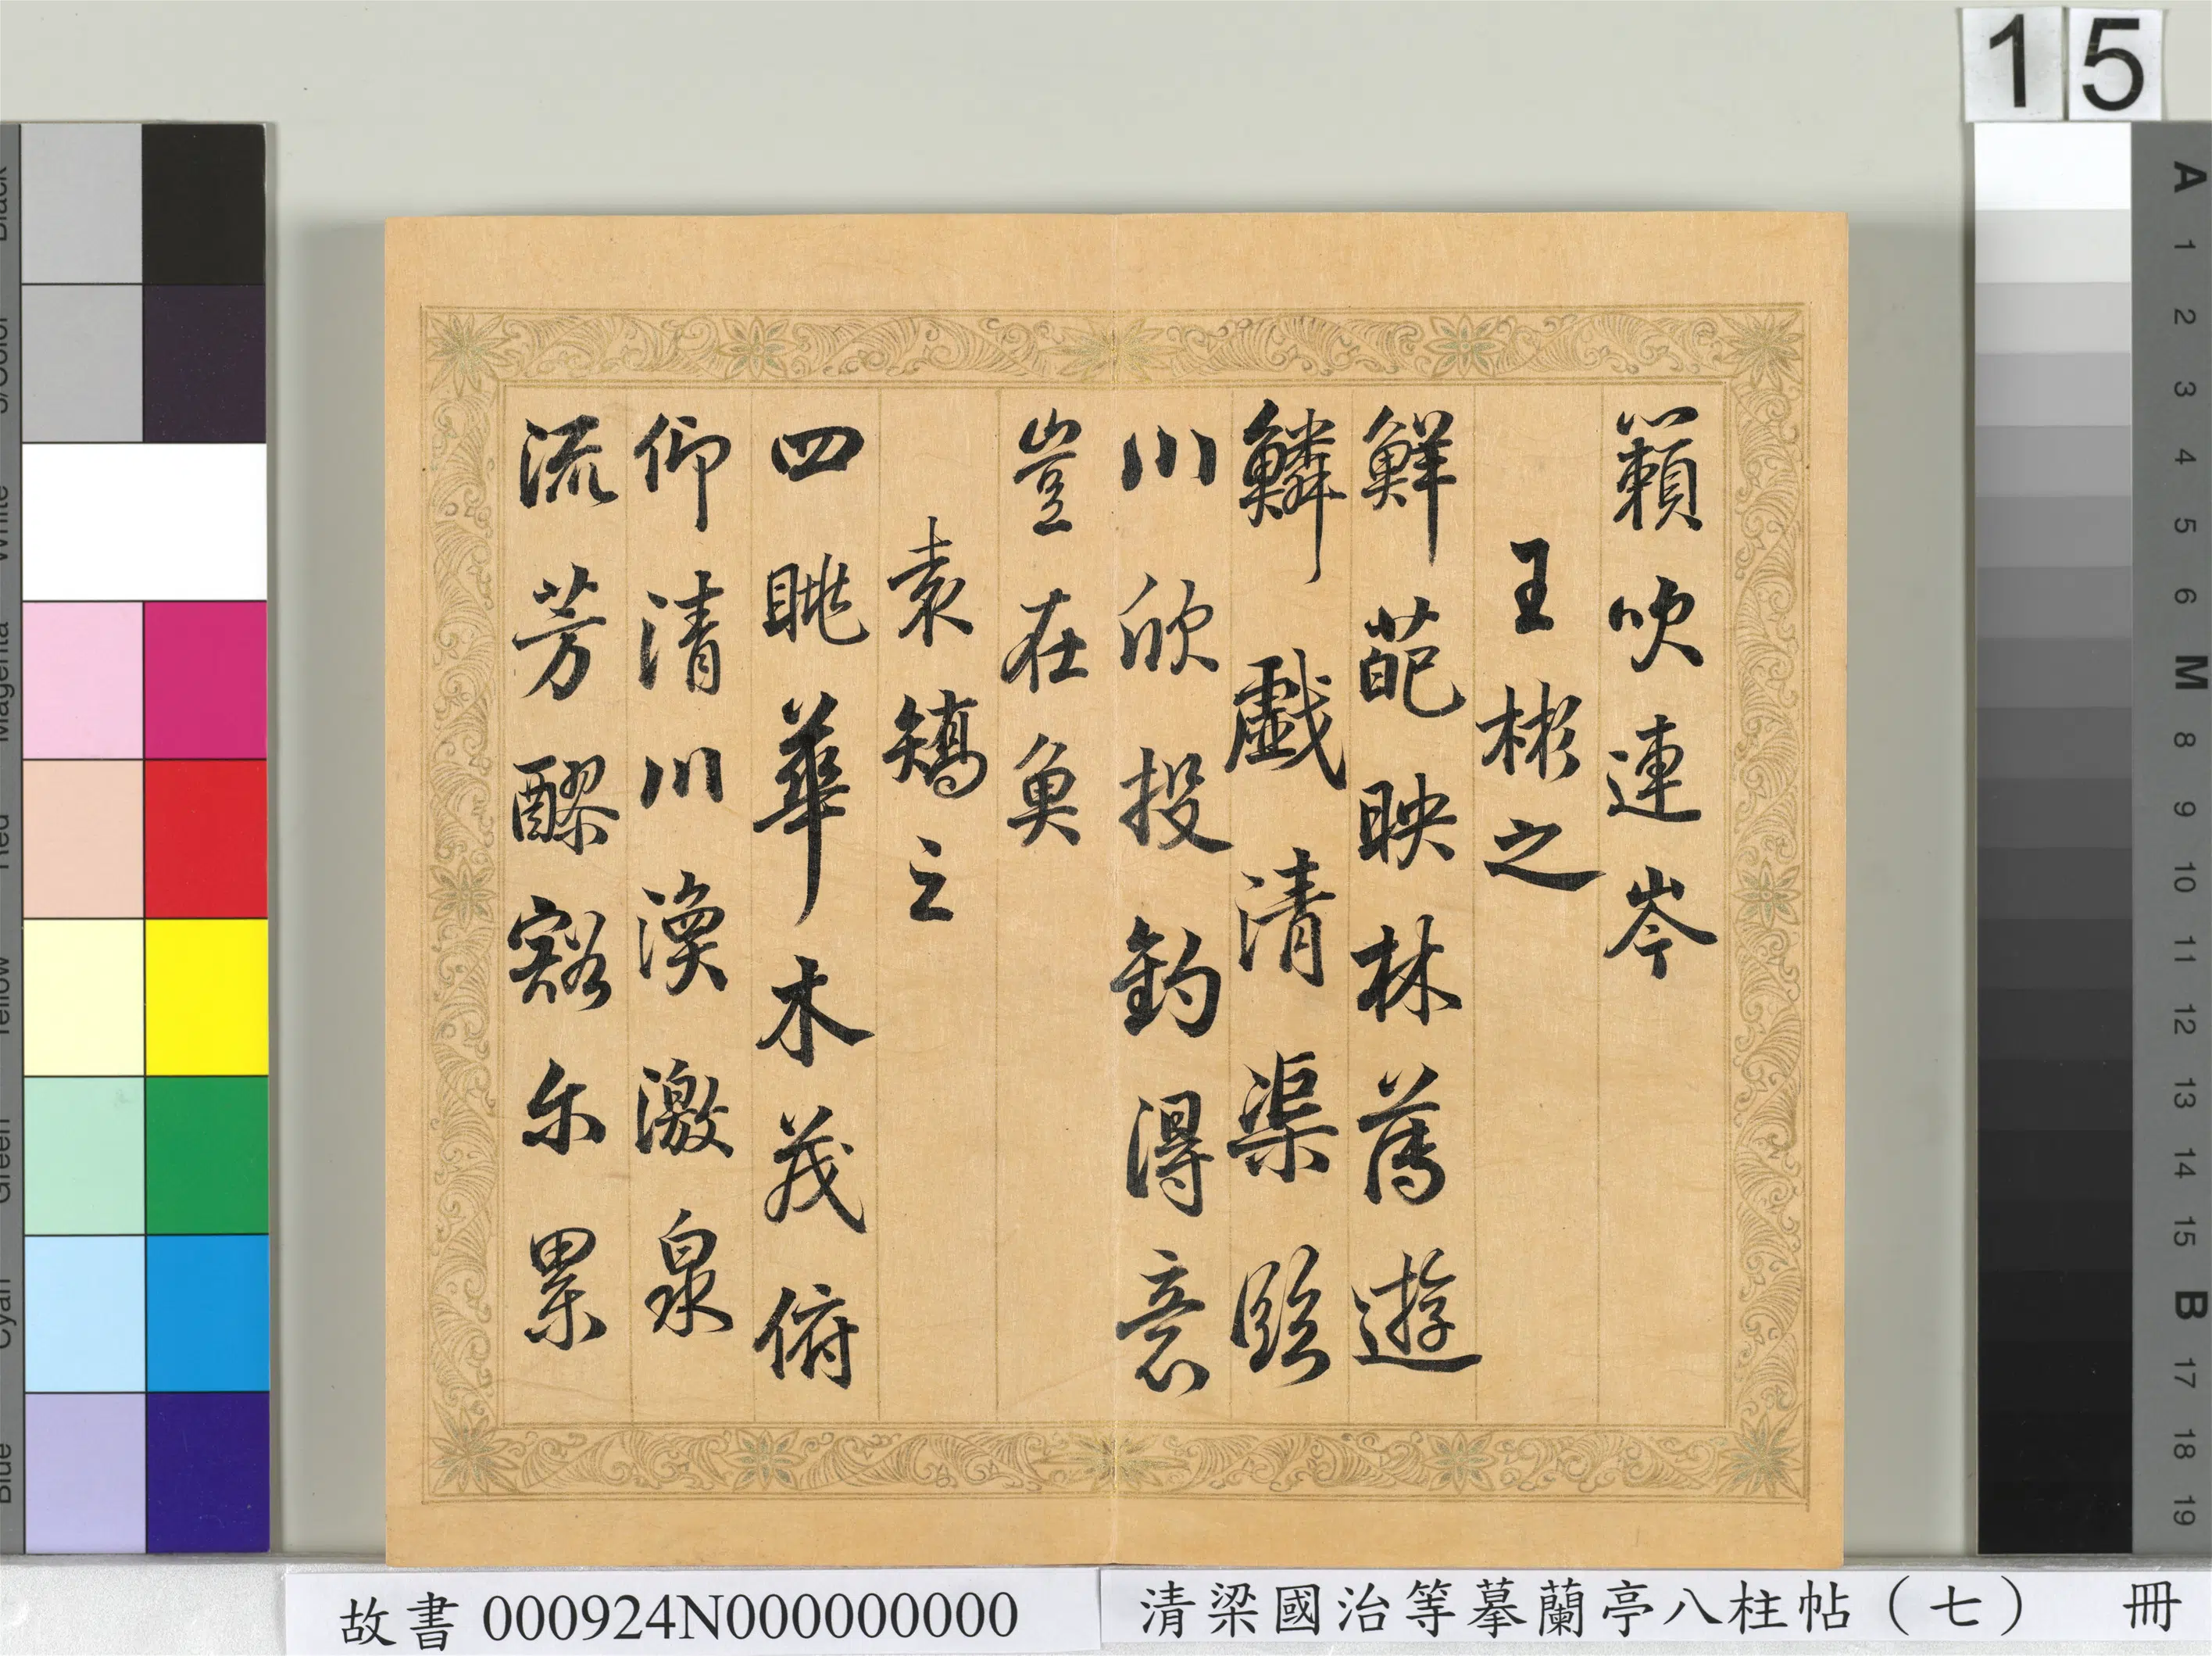 15
籟吹連岑
王彬之
鮮葩映林薄遊
鱗戲清渠臨
川欣投釣得意
豈在魚
袁矯之
四眺華木茂俯
仰清川渙激泉
流芳醪豁尔累
Black
3/Color
White
Magenta
Red
Yellow
Green
Cyan
Blue
A 1 2 3 4 5 6 M 8 9 10 11 12 13 14 15 B 17 18 19
故書 000924N000000000
清梁國治等摹蘭亭八柱帖（七） 冊